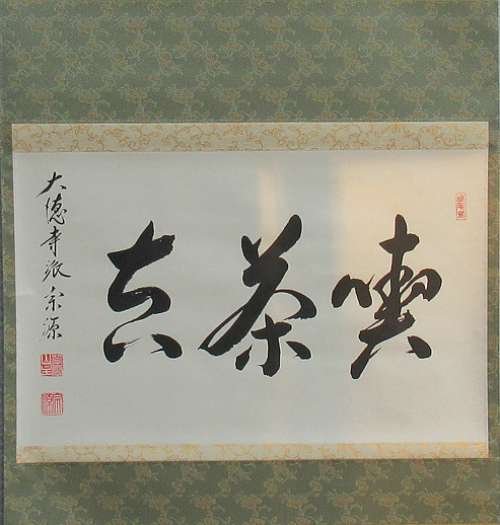 喫茶去
大徳寺派宗源